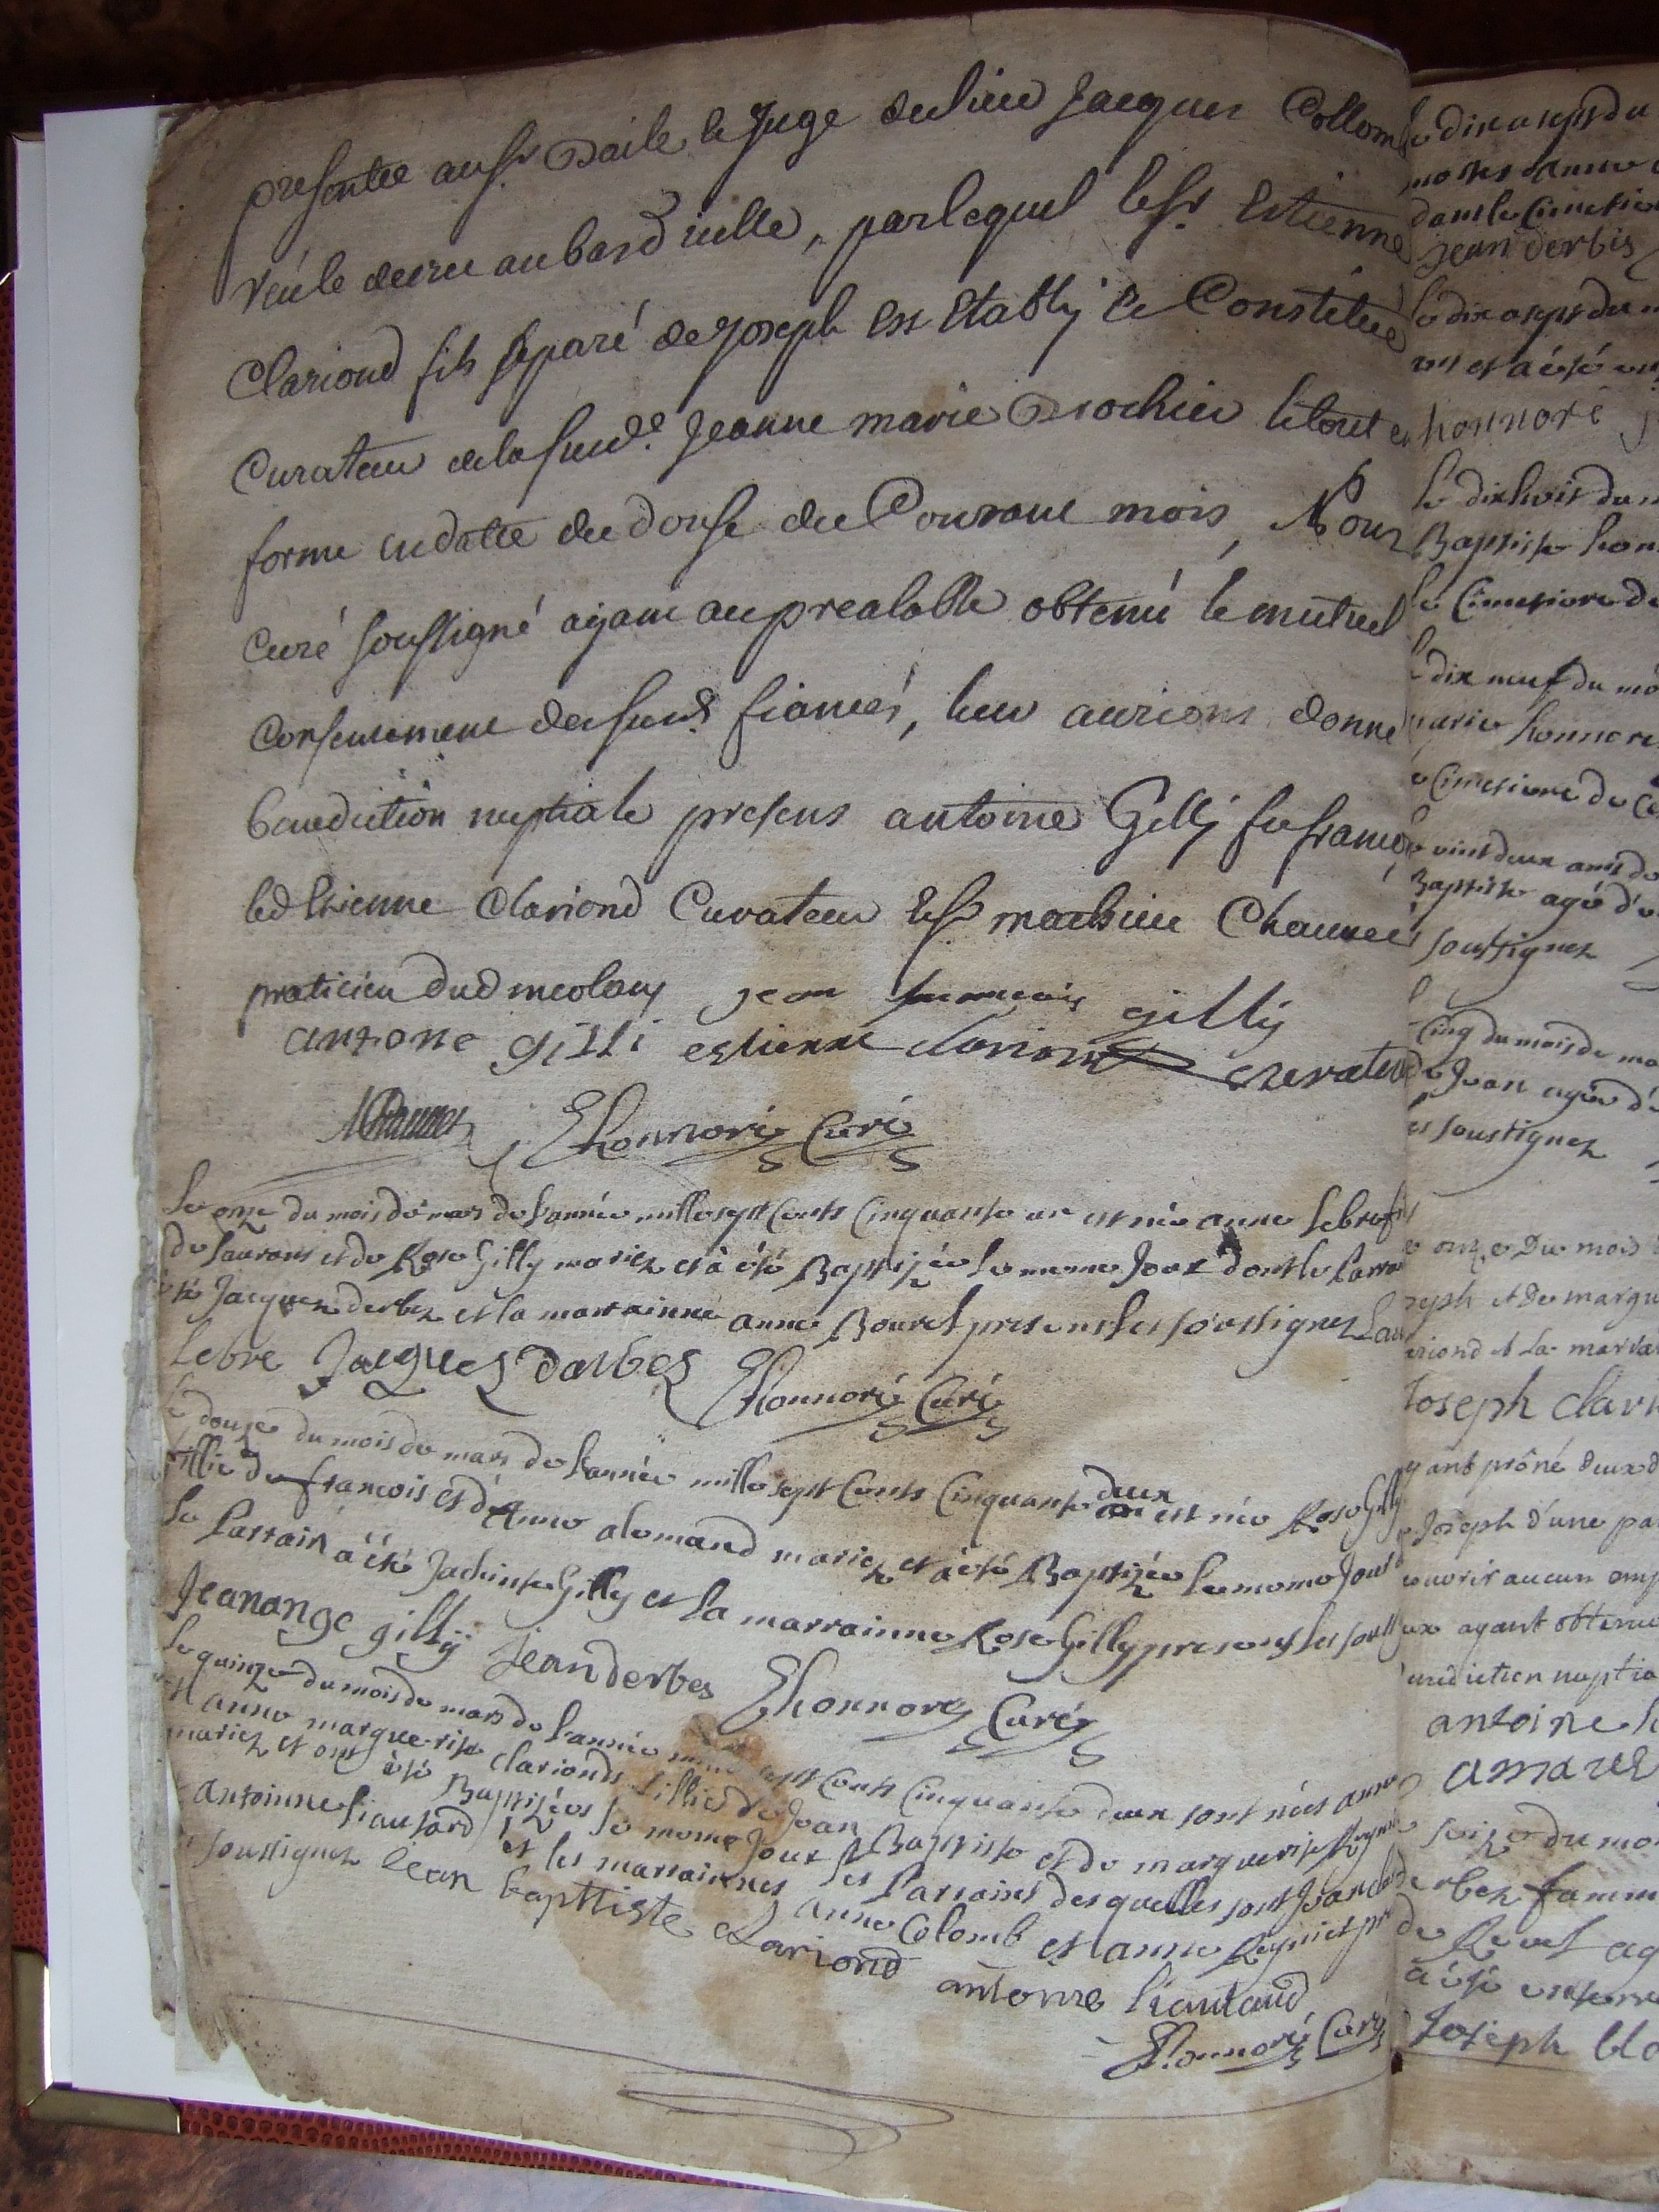 presentée au sr. Daile le Juge dudit lieu Jacques Collomb
decreté au bas d'icelle, par lequel le sr. Estienne
Clariond fils separé de Joseph est Etably et Constitué
Curateur de la susd.e Jeanne marie le tout en
forme en datte du douse du Courant mois, Nous
Curé soussigné ayant au prealable obtenu le mutuel
Consentement desd. fiancés, leur aurions donné
benediction nuptiale presens antoine Gilly feu francois
led Etienne Clariond Curateur le sr mathieu Chauvet
praticien dud meolans jean francois gilly
antone gilli estienne clariond curateur
Ehonnoré Curé
Le onze du mois de mars de l'année mille sept Cents Cinquante un est née anne Lebre fil
de Laurans et de Rose Gilly mariez et à été Baptizée le meme Jour dont le Parrain
été Jacques derbez et la marrainne anne Bouret presens les soussignez Lau
Lebre Jacques Darbes Ehonnoré Curé
le douze du mois de mars de l'année mille sept Cents Cinquante deux est née Rose Gilly
fillie de francois et d'Anne alemand mariez et à été Baptizée le meme Jour
le Parrain à été Jachinte Gilly et la marrainne Rose Gilly presens les souss
Jeanange gilly jean derbes Ehonnoré Curé
Le quinze du mois de mars de l'année mille sept Cents Cinquante deux sont nées anne
et anne marguerite clarionds fillies de Jean Baptiste et de marguerite Reynier
mariez et ont été Baptizées le meme Jour les Parrains desquelles sont Jean
Antoinne Liautard et les marrainnes anne Colomb et anne Reynier
soussignez Jean baptiste clariond antoine liautaud
Ehonnoré Curé
le dix a sept du
dans le Cimetie
jean derbis
le dix a sept du m
ans et a été en
honnoré
Le dix huit du m
Baptiste hon
le Cimetiere de
le dix neuf du mo
marie honnore
le Cimetiere de Ce
vint deux
Baptiste agé d'
soussignez
Cinq du mois de ma
de Jean agée d'
les soussignez
le onze Du mois
Joseph et De margue
clariond et La marra
Joseph clari
ayant prôné deux d
Joseph d'une par
decouvrir aucun emp
ayant obtenu
benediction nuptia
antoine
seize du mo
derbez famm
de Revel ag
à été enterre
Joseph